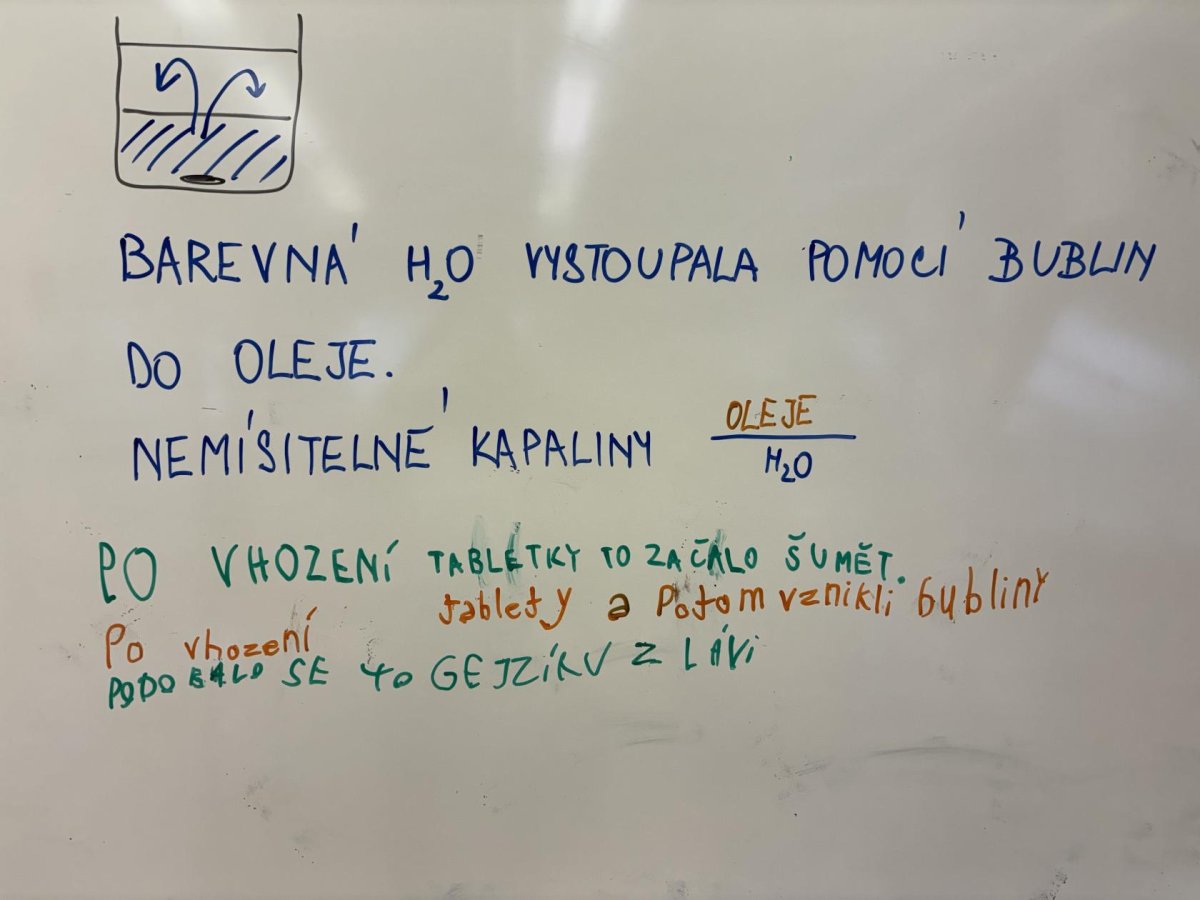 BAREVNÁ H₂O VYSTOUPALA POMOCÍ BUBLIN
DO OLEJE.
NEMÍSITELNÉ KAPALINY
OLEJE
H₂O
PO VHOZENÍ TABLETKY TO ZAČALO ŠUMĚT.
Po vhození tablety a Potom vznikli bubliny
PODOBALO SE to GEJZÍRU Z LÁVi